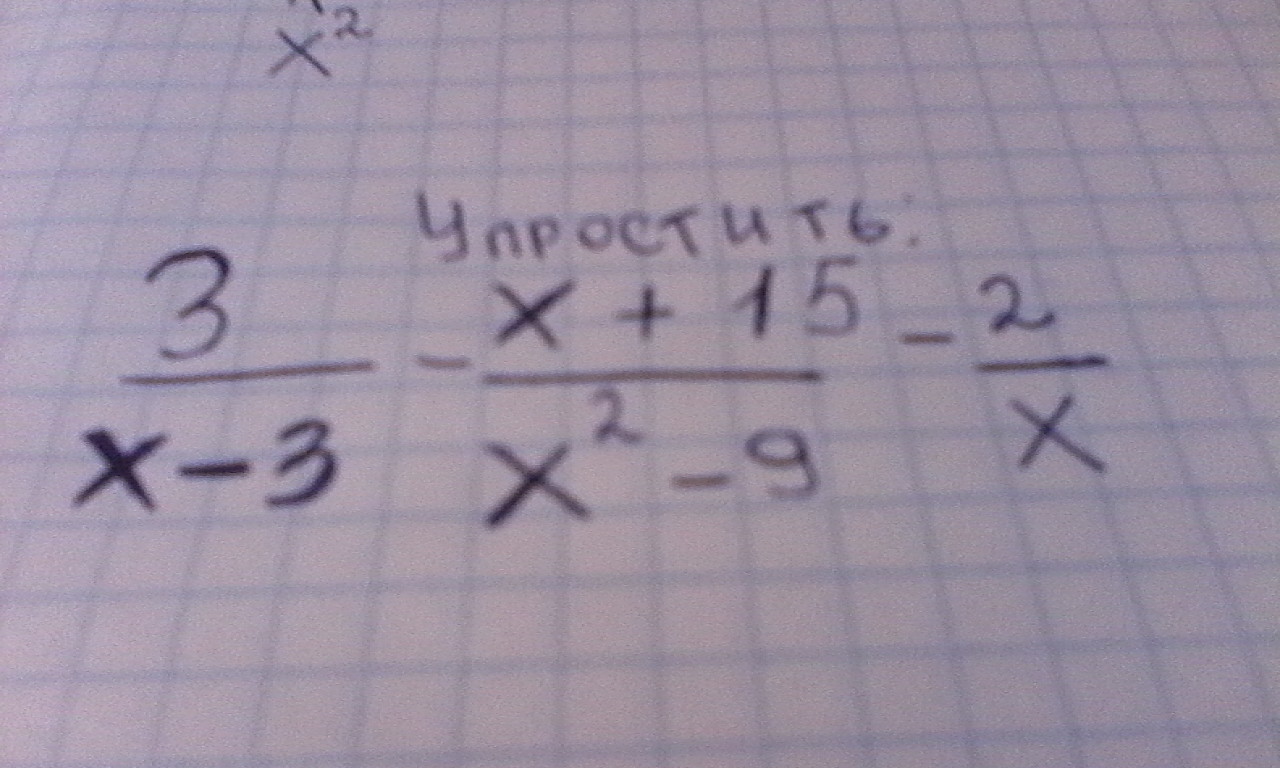 x²
Упростить:
3/(x-3) - (x + 15)/(x² - 9) - 2/x